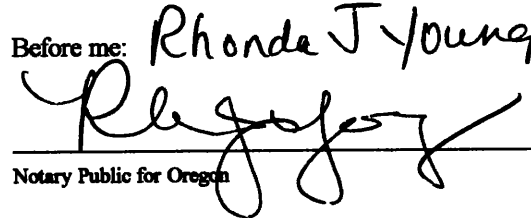 Before me: Rhonda J Young
Notary Public for Oregon